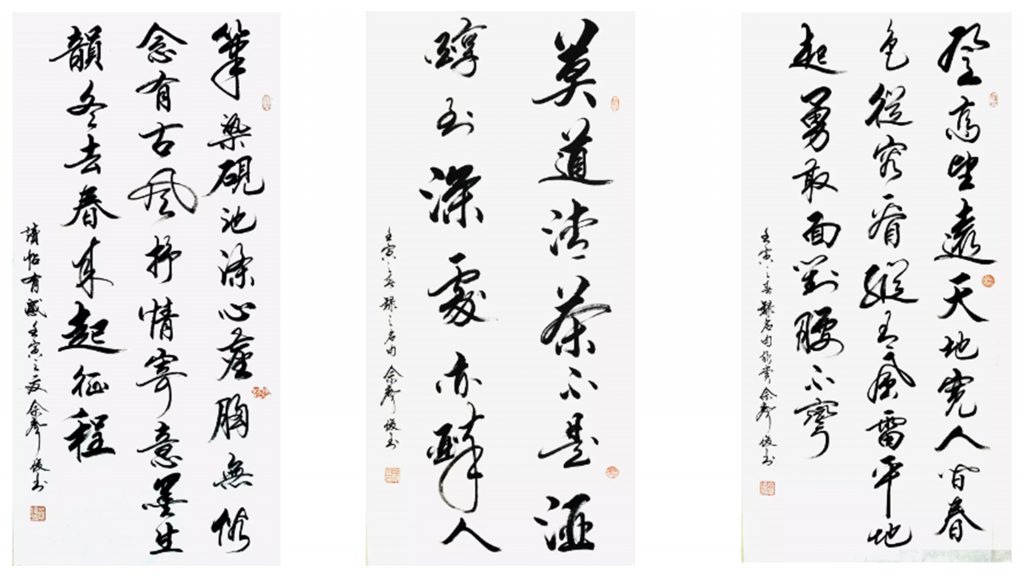 筆染硯池滌心塵胸無俗
念有古風抒情寄意墨生
韻冬去春來起征程
讀帖有感壬寅之夏余俊书
莫道清茶不是酒
醇到深處亦醉人
壬寅之春録之名句余俊书
登高望遠天地寬人間春
色從容看縱有風雷平地
起勇敢面對腰不彎
壬寅之春録名句余俊书